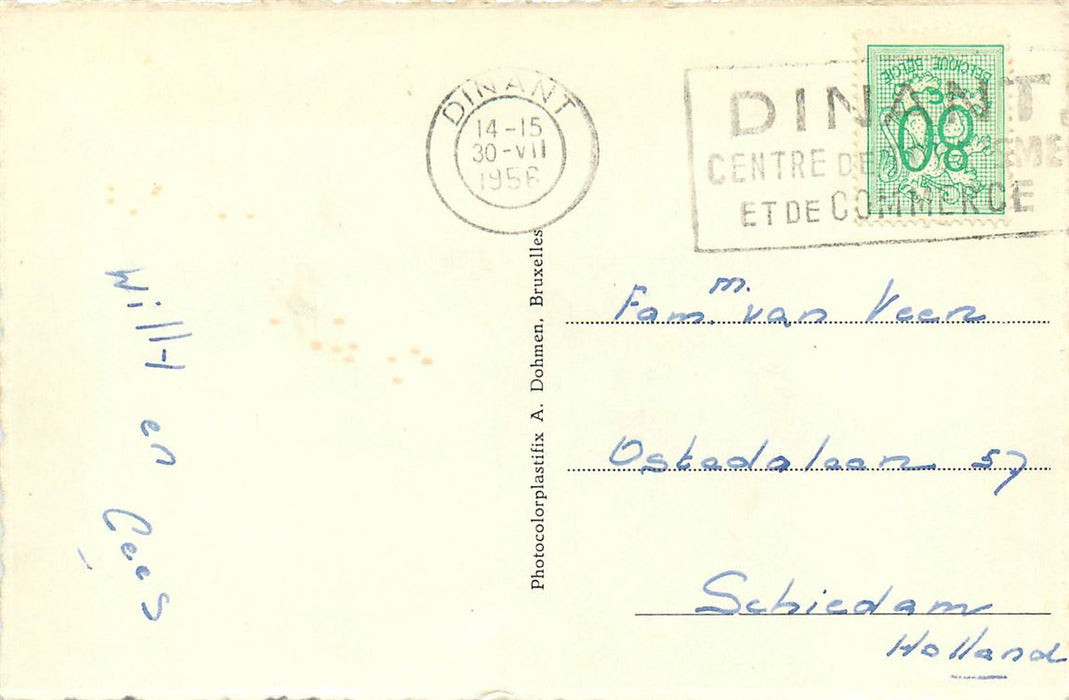 DINANT
14-15
30-VII
1956
DINANT
CENTRE DE
ET DE COMMERCE
BELGIQUE BELGIE
80
Willy en Cees
Photocolorplastifix A. Dohmen, Bruxelles
Fam. m. van Veen
Ostadalaan 57
Schiedam
Holland